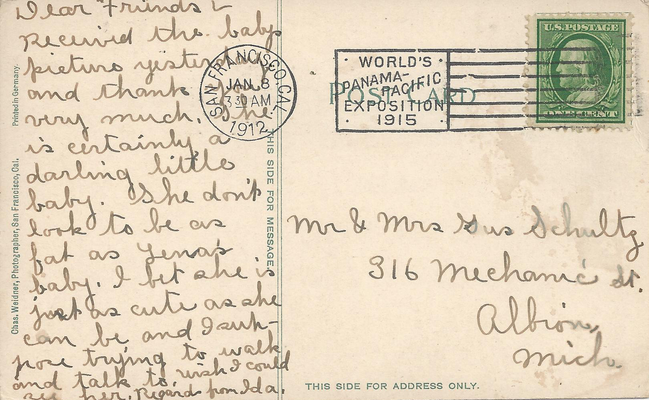 Dear Friends I
Received the babys
picture yisterday
and thank you
very much. She
is certainly a
darling little
baby. She don't
look to be as
fat as Lena's
baby. I bet she is
just as cute as she
can be and I sup-
pose trying to walk
and talk to, wish I could
see her. Regards from Ida.
Printed in Germany.
Chas. Weidner, Photographer, San Francisco, Cal.
THIS SIDE FOR MESSAGE.
SAN FRANCISCO, CAL.
JAN 8
3 30 AM
1912
WORLD'S
PANAMA-PACIFIC
EXPOSITION
1915
POST CARD
U.S. POSTAGE
ONE CENT
Mr & Mrs Gus Schultz
316 Mechanic St.
Albion,
Mich.
THIS SIDE FOR ADDRESS ONLY.